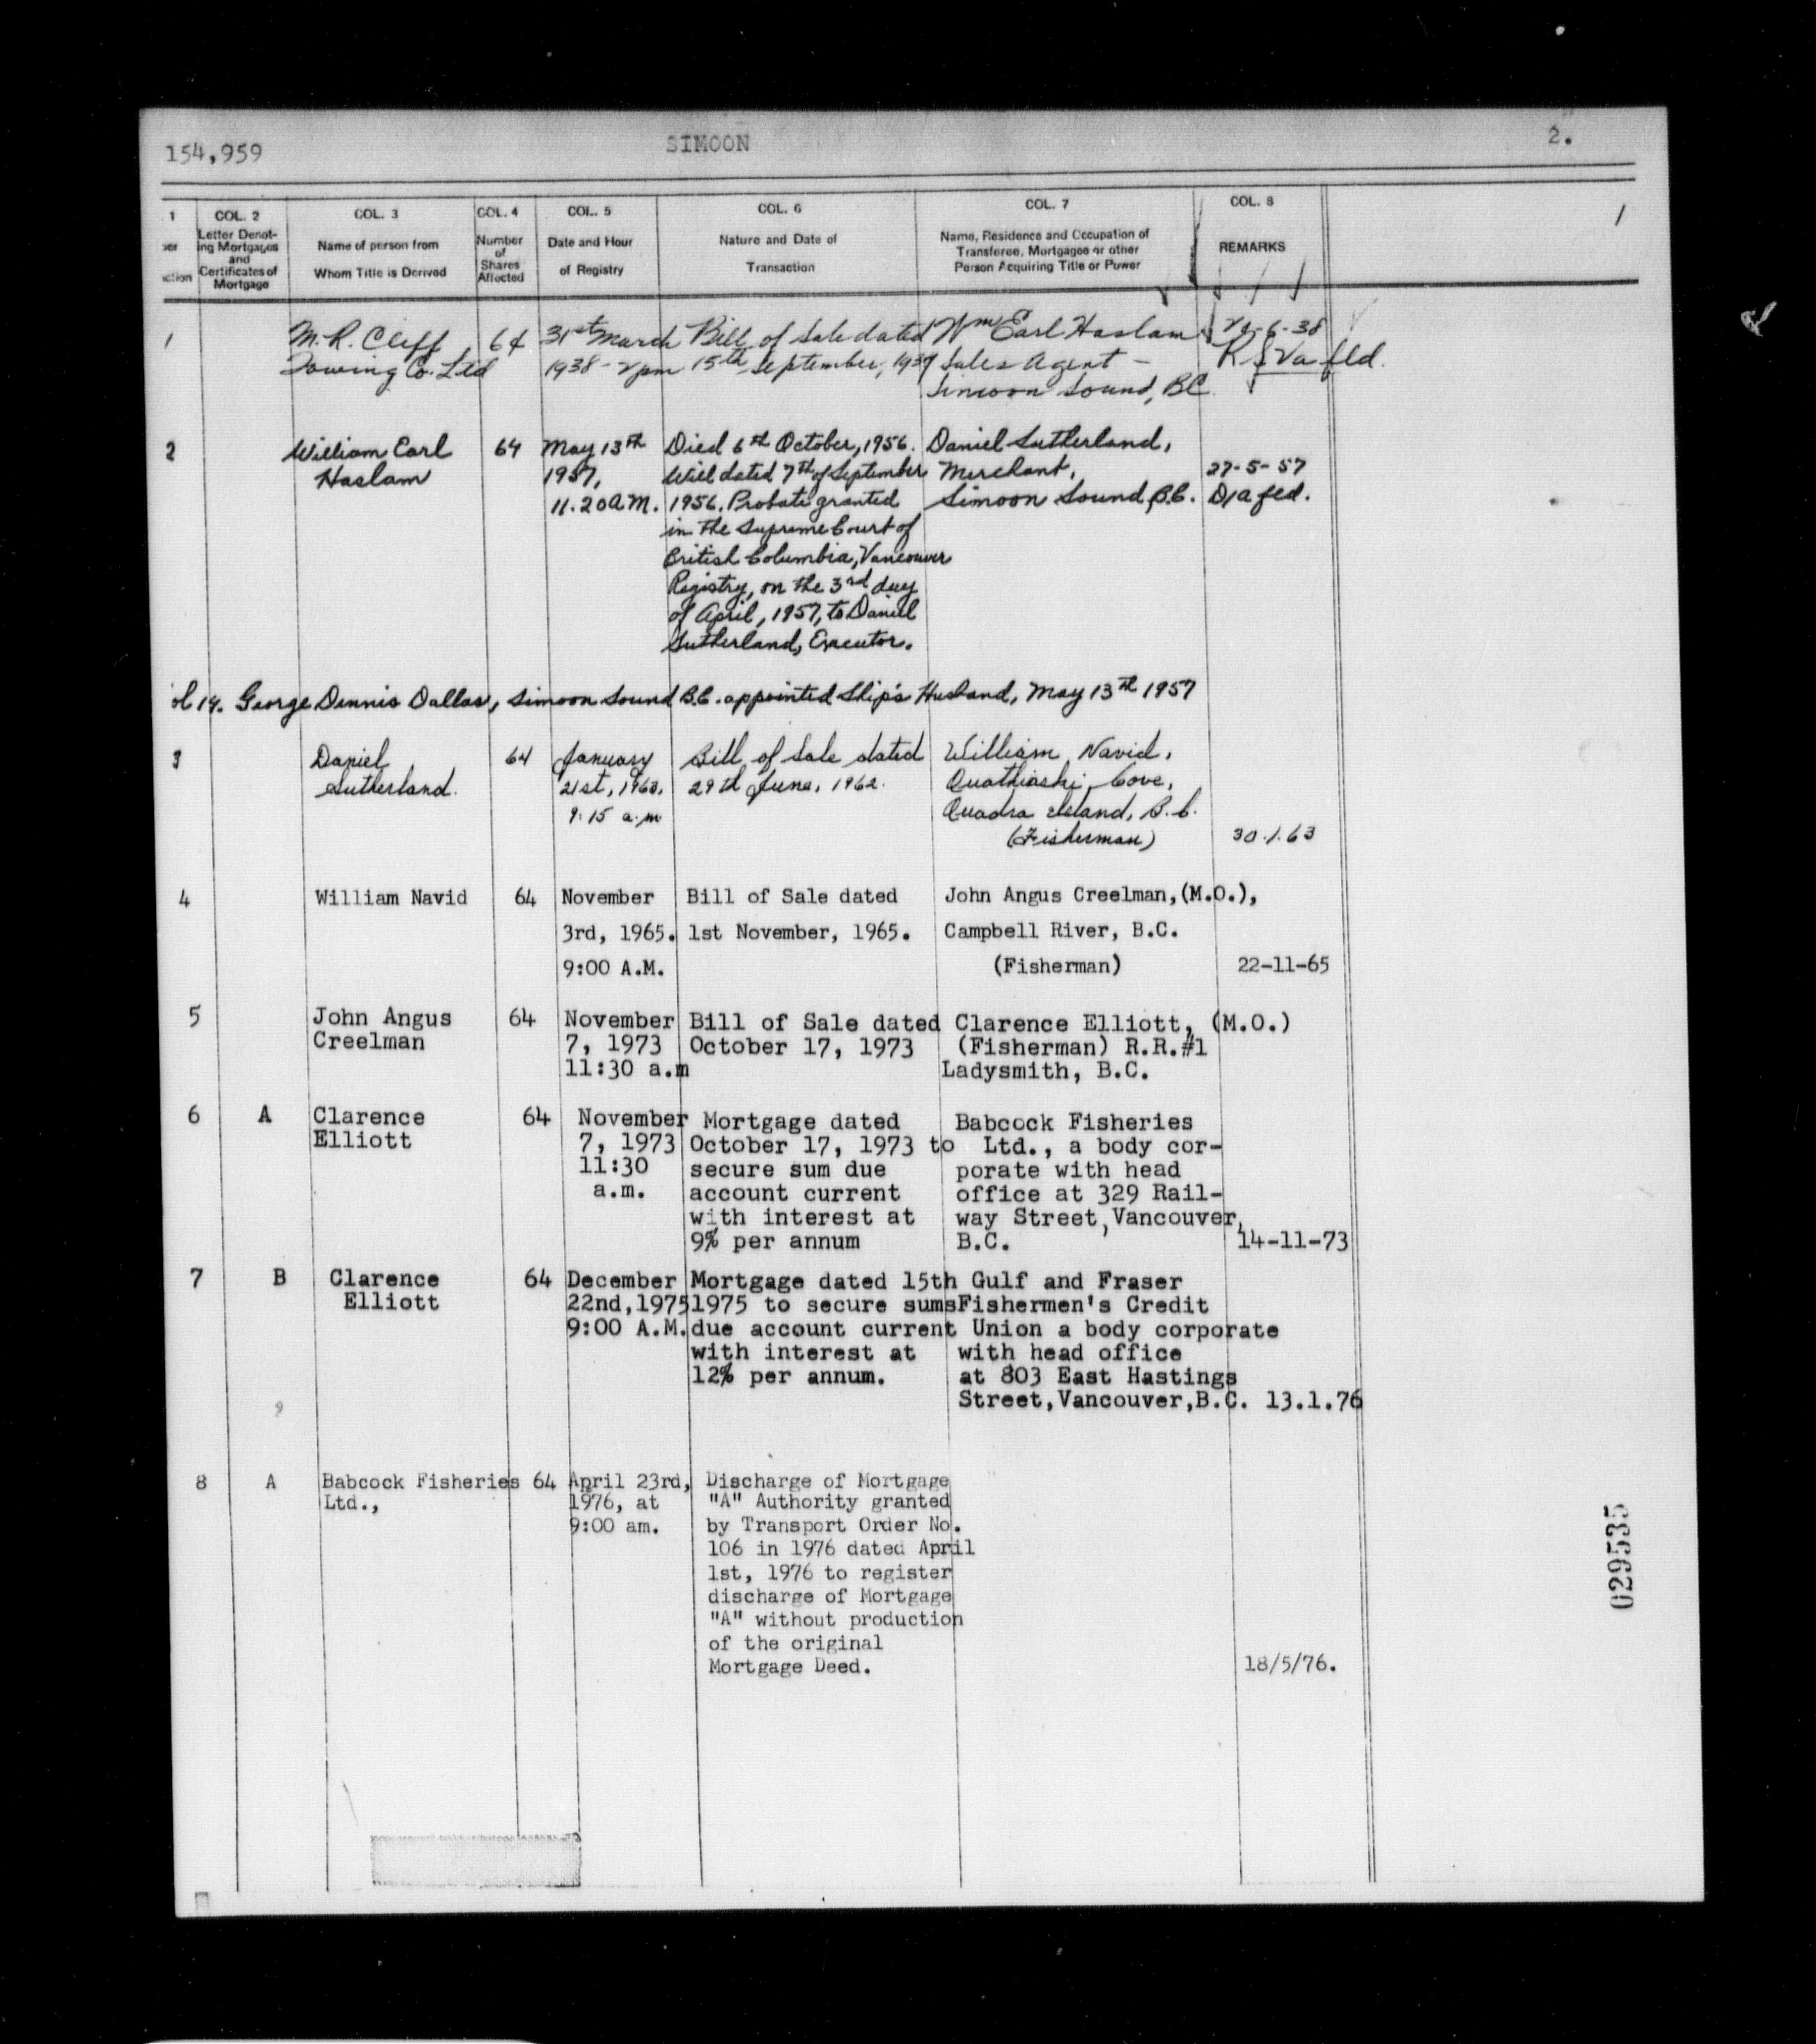 154,959 SIMOON 2.
1 COL. 2 COL. 3 COL. 4 COL. 5 COL. 6 COL. 7 COL. 8
Letter Denot-
ing Mortgages
and
Certificates of
Mortgage
Name of person from
Whom Title is Derived
Number
of
Shares
Affected
Date and Hour
of Registry
Nature and Date of
Transaction
Name, Residence and Occupation of
Transferee, Mortgagee or other
Person Acquiring Title or Power
REMARKS
1
1 M.R. Cliff 64 31st March Bill of Sale dated Wm Earl Haslam
Towing Co. Ltd 1938 - 2pm 15th September, 1937 Sales Agent -
Simoon Sound, BC
2 William Earl 64 May 13th Died 6th October, 1956. Daniel Sutherland,
Haslam 1957, Will dated 7th of September Merchant, 27-5-57
11.20 A.M. 1956. Probate granted Simoon Sound, B.C. D/A fld.
in the Supreme Court of
British Columbia, Vancouver
Registry, on the 3rd day
of April, 1957, to Daniel
Sutherland, Executor.
ol 14. George Dennis Dallas, Simoon Sound B.C. appointed Ship's Husband, May 13th 1957
3 Daniel 64 January Bill of Sale dated William Navid,
Sutherland. 21st, 1963, 29th June, 1962. Quathiaski Cove,
9:15 a.m Quadra Island, B.C.
(Fisherman) 30.1.63
4 William Navid 64 November Bill of Sale dated John Angus Creelman,(M.O.),
3rd, 1965. 1st November, 1965. Campbell River, B.C.
9:00 A.M. (Fisherman) 22-11-65
5 John Angus 64 November Bill of Sale dated Clarence Elliott, (M.O.)
Creelman 7, 1973 October 17, 1973 (Fisherman) R.R.#1
11:30 a.m Ladysmith, B.C.
6 A Clarence 64 November Mortgage dated Babcock Fisheries
Elliott 7, 1973 October 17, 1973 to Ltd., a body cor-
11:30 secure sum due porate with head
a.m. account current office at 329 Rail-
with interest at way Street,Vancouver,
9% per annum B.C. 14-11-73
7 B Clarence 64 December Mortgage dated 15th Gulf and Fraser
Elliott 22nd,1975 1975 to secure sums Fishermen's Credit
9:00 A.M. due account current Union a body corporate
with interest at with head office
12% per annum. at 803 East Hastings
9 Street,Vancouver,B.C. 13.1.76
8 A Babcock Fisheries 64 April 23rd, Discharge of Mortgage
Ltd., 1976, at "A" Authority granted
9:00 am. by Transport Order No.
106 in 1976 dated April
1st, 1976 to register
discharge of Mortgage
"A" without production
of the original
Mortgage Deed. 18/5/76.
029535